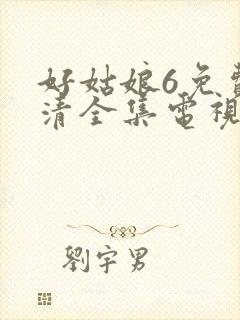 好姑娘6免費
清全集電視
劉宇男